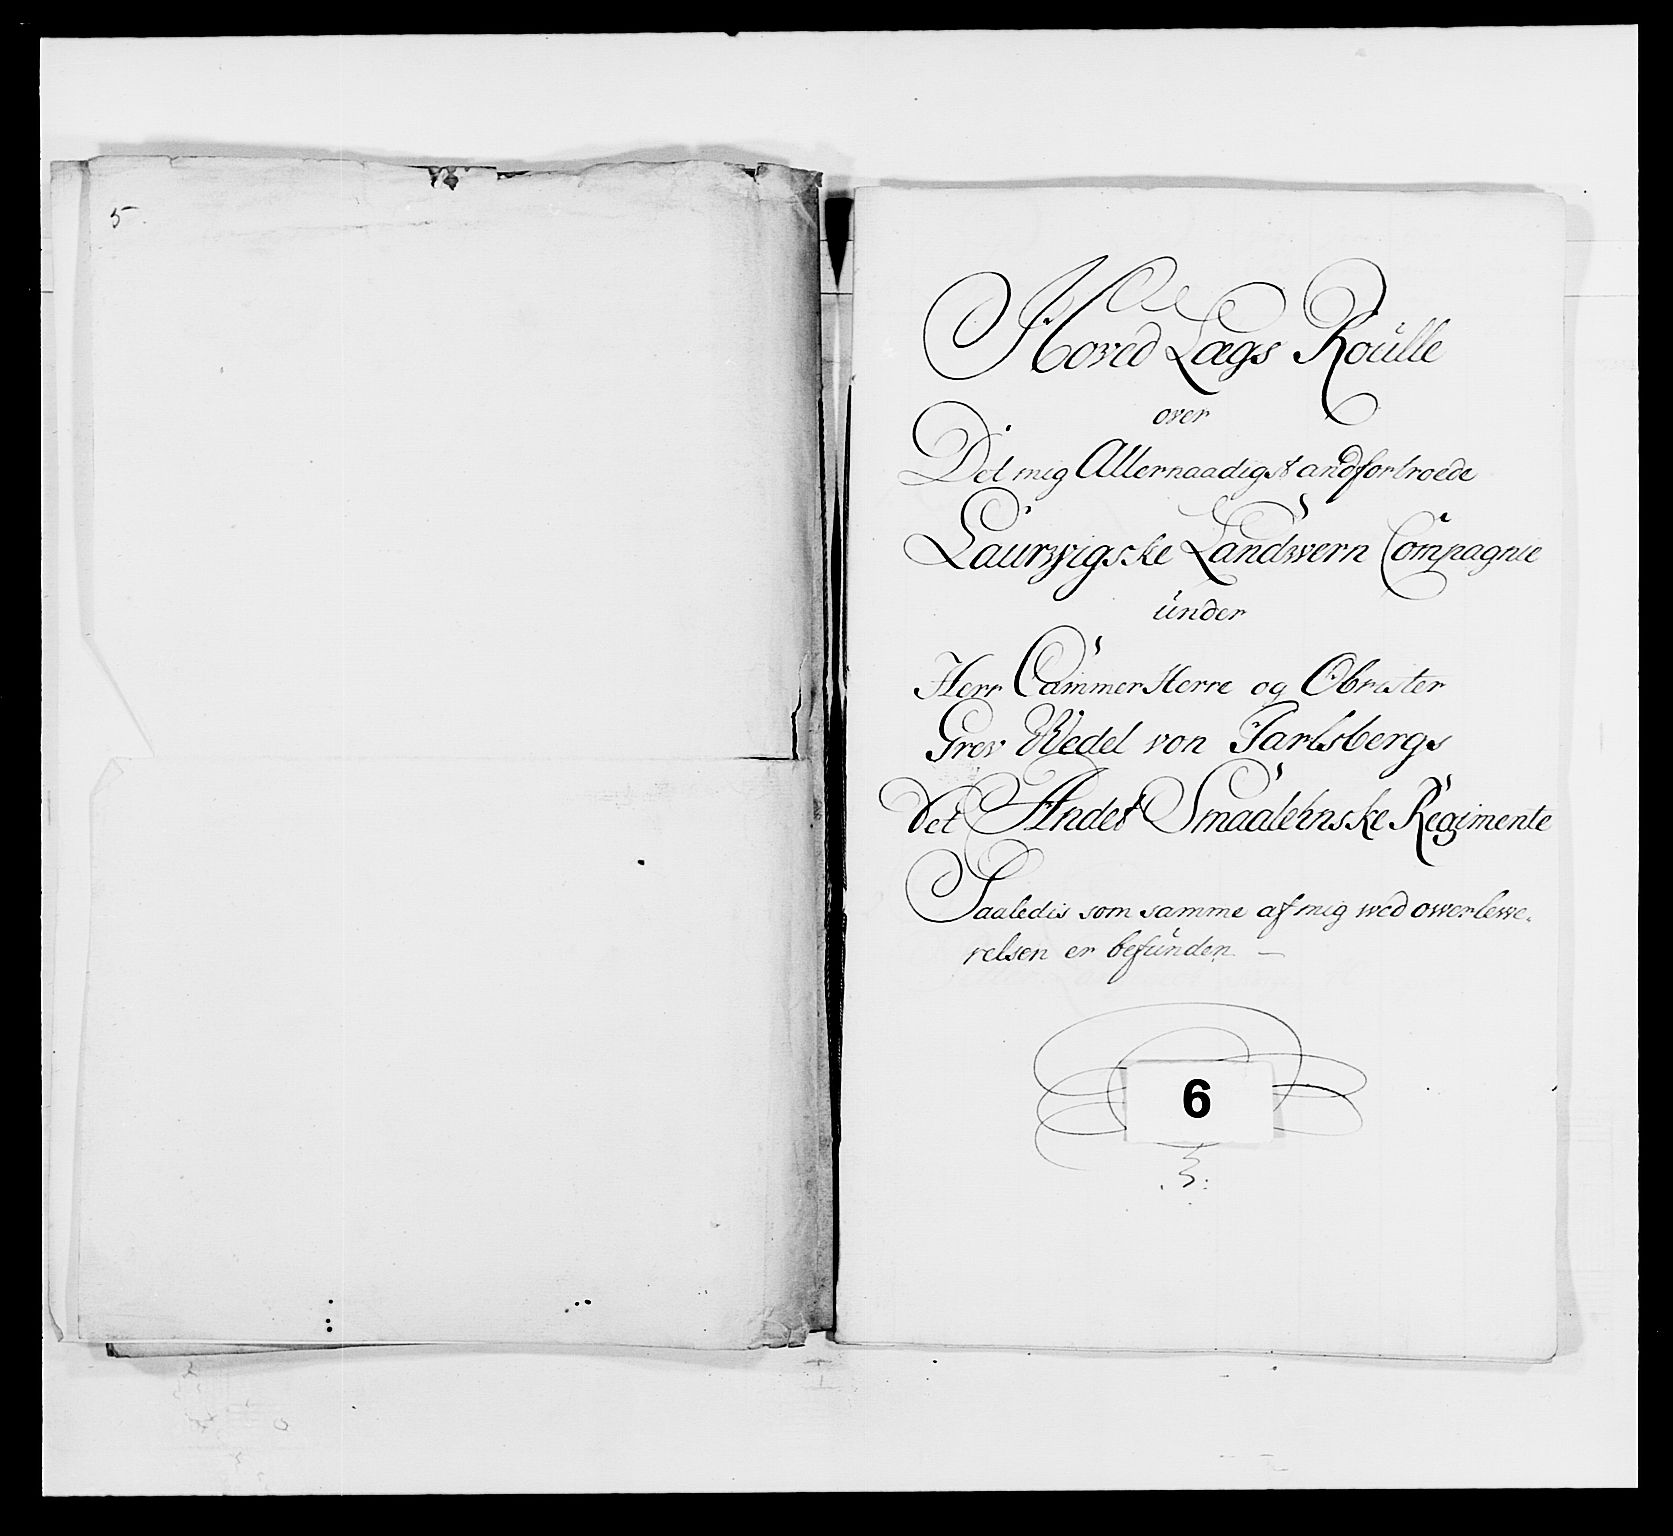 5
Hoved Lægs Roülle
over
Det mig Allernaadigst andfortroede
Laurvigske Landwern Compagnie
ünder
Herr Cammer Herre og Obrister
Grev Wedel von Jarlsbergs
Det Andet Smaalehnske Regimente
Saaledis som samme af mig wed owerlewe-
relsen er befünden —
6